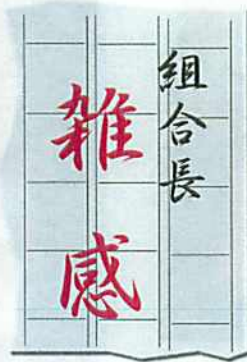 組合長
雑感